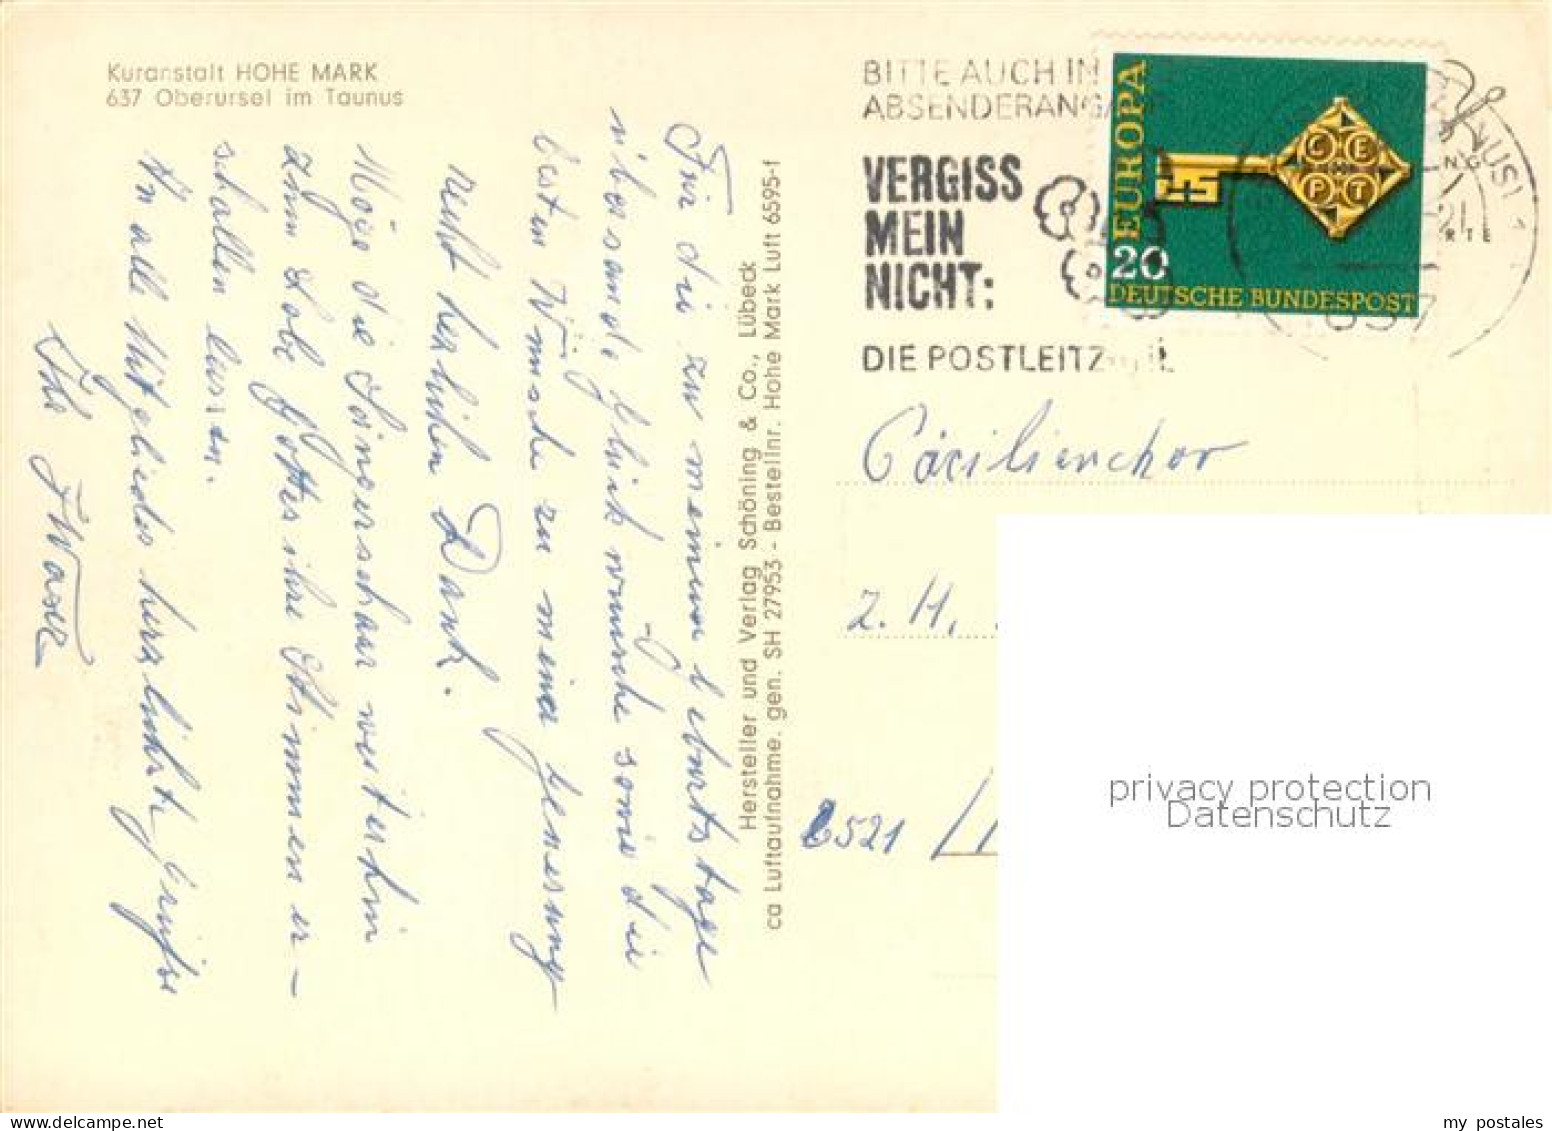 Kuranstalt HOHE MARK
637 Oberursel im Taunus
Für die zu meinem Geburtstage
übersandt. Glückwünsche sowie die
besten Wünsche zu meiner Genesung
recht herzlichen Dank.
Möge die Sängerschaar weiterhin
zum Lobe Gottes ihre Stimmen er-
schallen lassen.
An alle Mitglieder herzlichste Grüße
Ihr
Hersteller und Verlag Schöning & Co., Lübeck
ca Luftaufnahme. gen. SH 27953 - Bestellnr. Hohe Mark Luft 6595-f
BITTE AUCH IN
ABSENDERANGA
VERGISS
MEIN
NICHT:
DIE POSTLEITZ
EUROPA
CEPT
20
DEUTSCHE BUNDESPOST
637
Cäcilienchor
z. H.
6521
privacy protection
Datenschutz
my postales